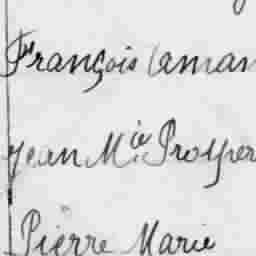 François Aman
Jean Mie Prosper
Pierre Marie